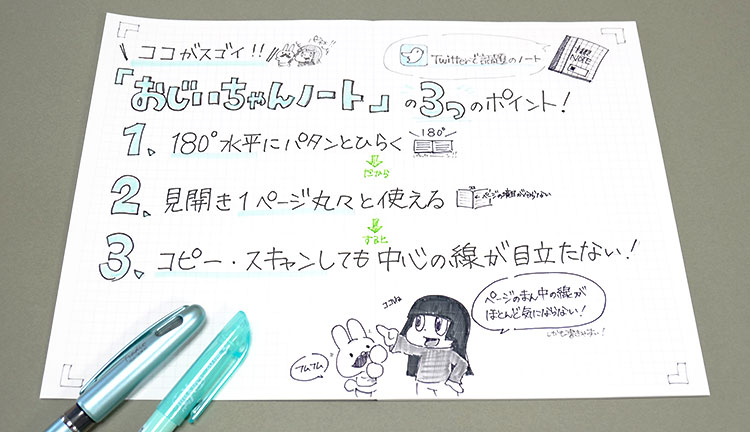 \ ココがスゴイ!! /
Twitterで話題のノート
NOTE
「おじいちゃんノート」の3つのポイント!
1、180°水平にパタンとひらく
\180°/
だから
2、見開き1ページ丸々と使える
すると
3、コピー・スキャンしても中心の線が目立たない!
ページのまん中の線が
ほとんど気にならない!
しかも書きやすい!
ココにね
フムフム